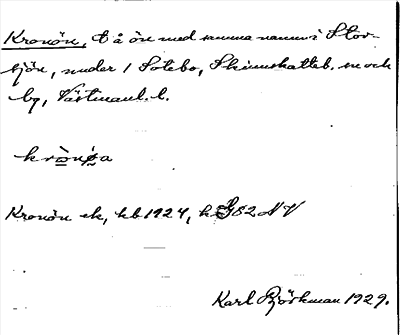 Kronön, t å ön med samma namn i Stor-
sjön, under 1 Sotebo, Skinnskatteb. sn och
bg, Västmanl. l.
krònø̀a
Kronön ek, kb 1924, h G82 NV
Karl Björkman 1929.